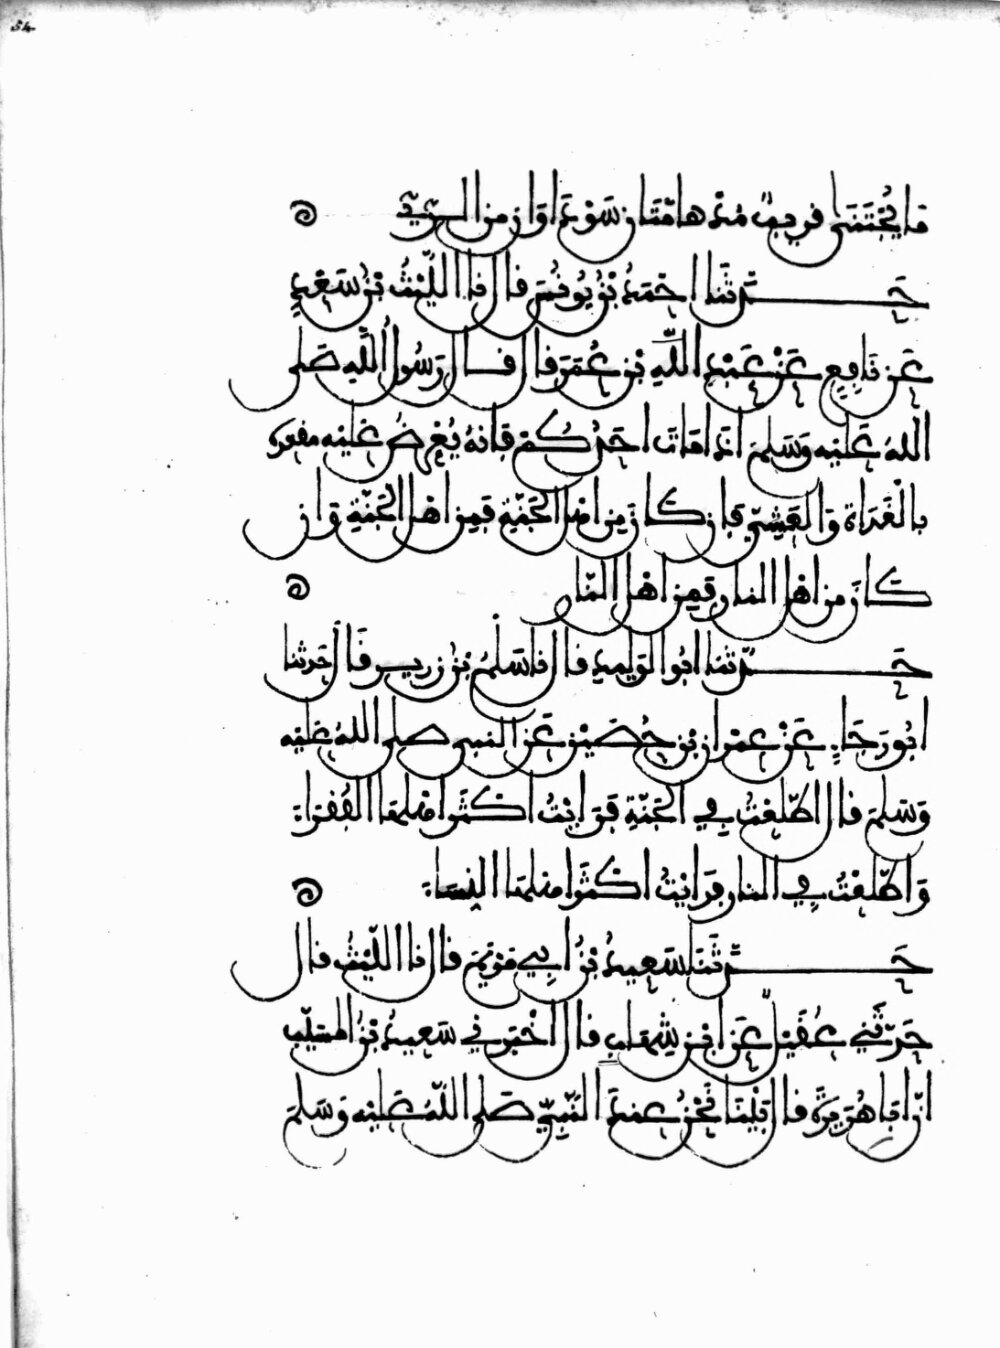 54
ما يجتنى قريب منه هامتان سوداوان من الري
حدثنا احمد بن يونس قال نا الليث بن سعد
عن نافع عن عبد الله بن عمر قال قال رسول الله صلى
الله عليه وسلم اذا مات احدكم فانه يعرض عليه مقعده
بالغداة والعشي فان كان من اهل الجنة فمن اهل الجنة وان
كان من اهل النار فمن اهل النار
حدثنا ابو الوليد قال نا سلم بن زرير قال حدثنا
ابو رجاء عن عمران بن حصين عن النبي صلى الله عليه
وسلم قال اطلعت في الجنة فرايت اكثر اهلها الفقراء
واطلعت في النار فرايت اكثر اهلها النساء
حدثنا سعيد بن ابي مريم قال نا الليث قال
حدثني عقيل عن ابن شهاب قال اخبرني سعيد بن المسيب
ان ابا هريرة قال بينا نحن عند النبي صلى الله عليه وسلم